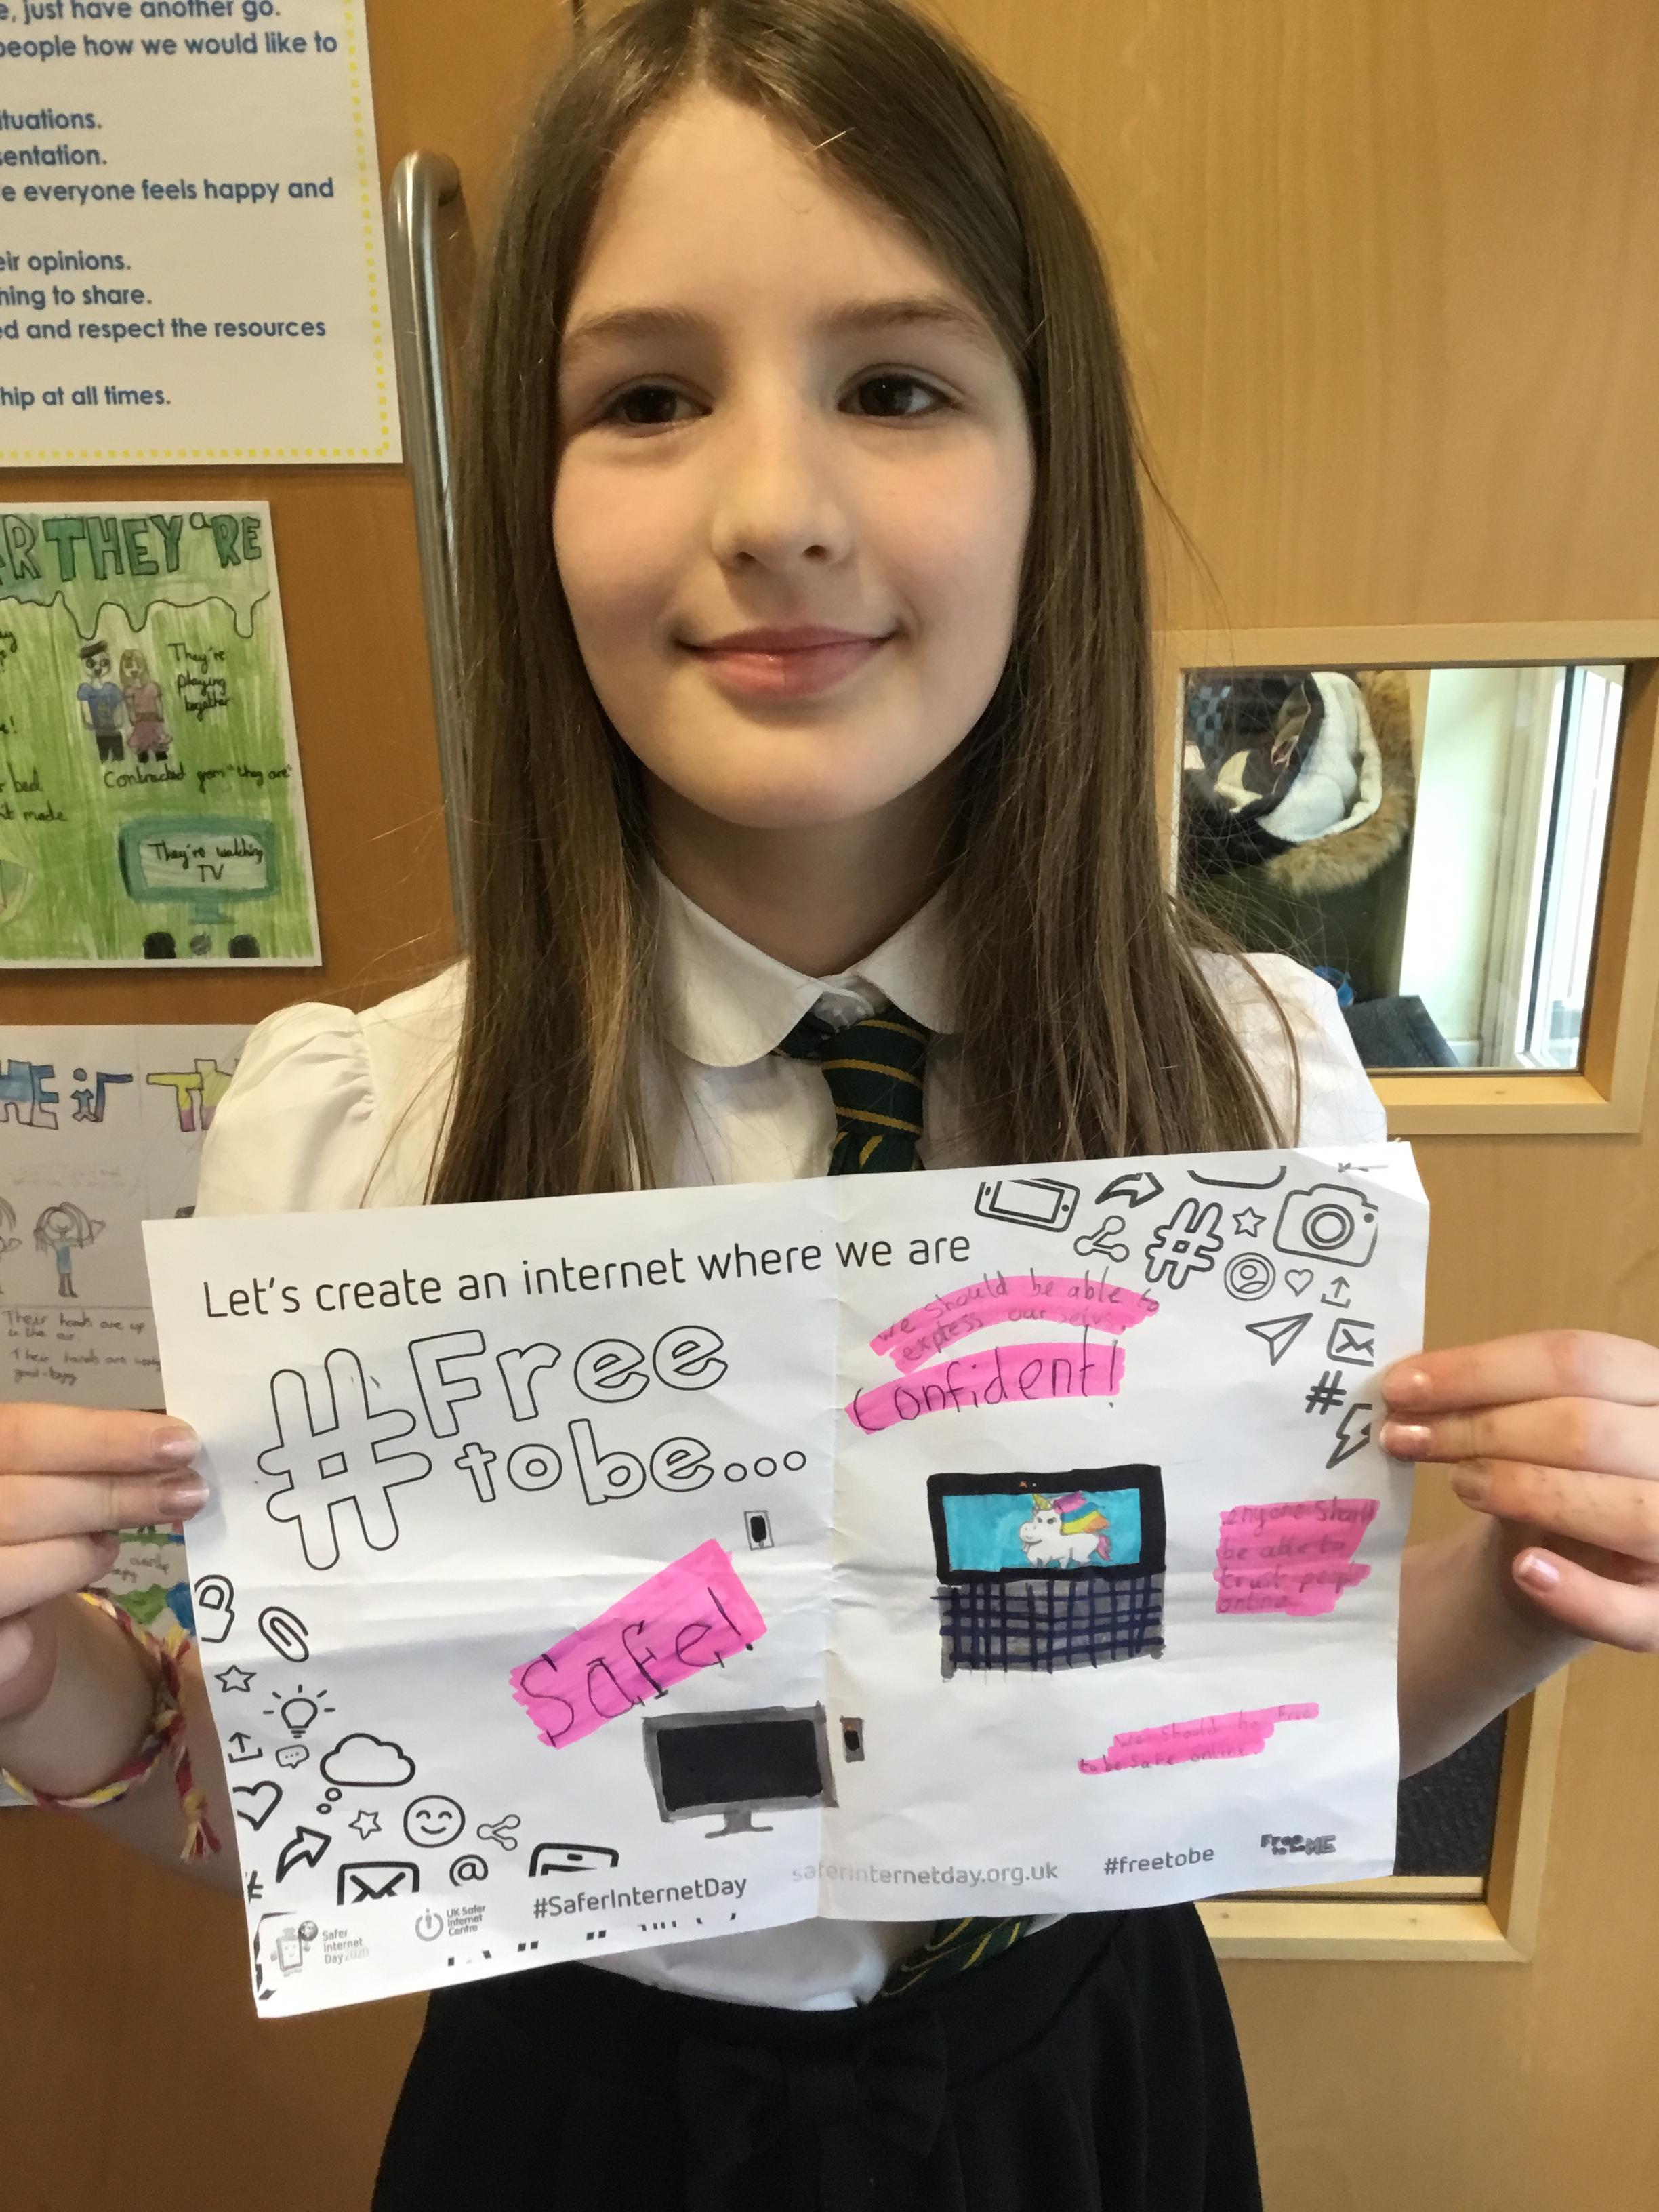 e, just have another go.
people how we would like to
ituations.
sentation.
e everyone feels happy and
eir opinions.
hing to share.
ed and respect the resources
hip at all times.
R THEY'RE
They're
playing
together
Contracted from "they are"
bed
it made
They're watching
TV
Their hands are up
in the air.
Their hands are
Let's create an internet where we are
#Free
to be...
we should be able to
express our selvs.
Confident!
anyone should
be able to
trust people
online
Safe!
We should be Free
to be safe online.
Safer
Internet
Day 2020
UK Safer
Internet
Centre
#SaferInternetDay
saferinternetday.org.uk
#freetobe
Free
to be ME